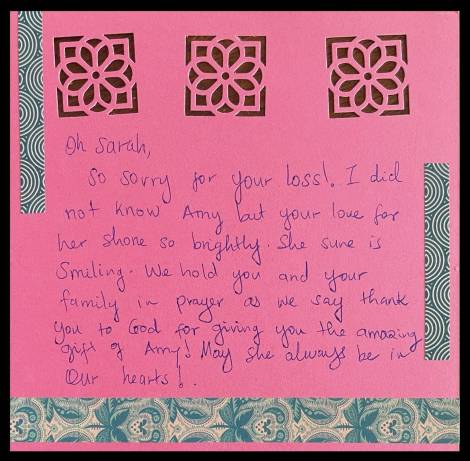 Oh Sarah,
So sorry for your loss!. I did
not know Amy but your love for
her shone so brightly. She sure is
Smiling. We hold you and your
family in prayer as we say thank
you to God for giving you the amazing
gift of Amy! May she always be in
Our hearts!.